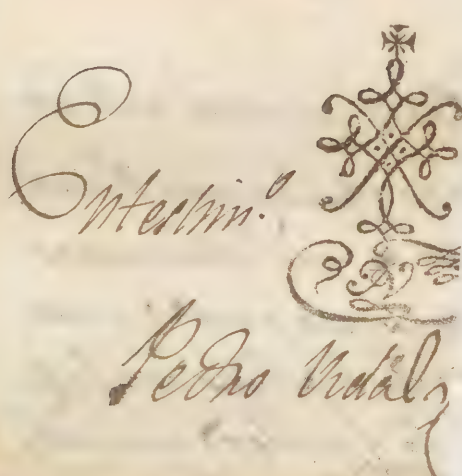 Entestim.º
Pedro Vidal